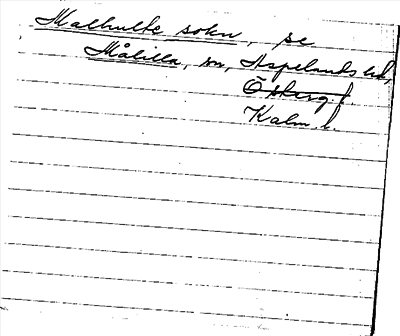 Malhulte sokn, se
Målilla, sn, Aspelands hd,
Östberg. l.
Kalm. l.